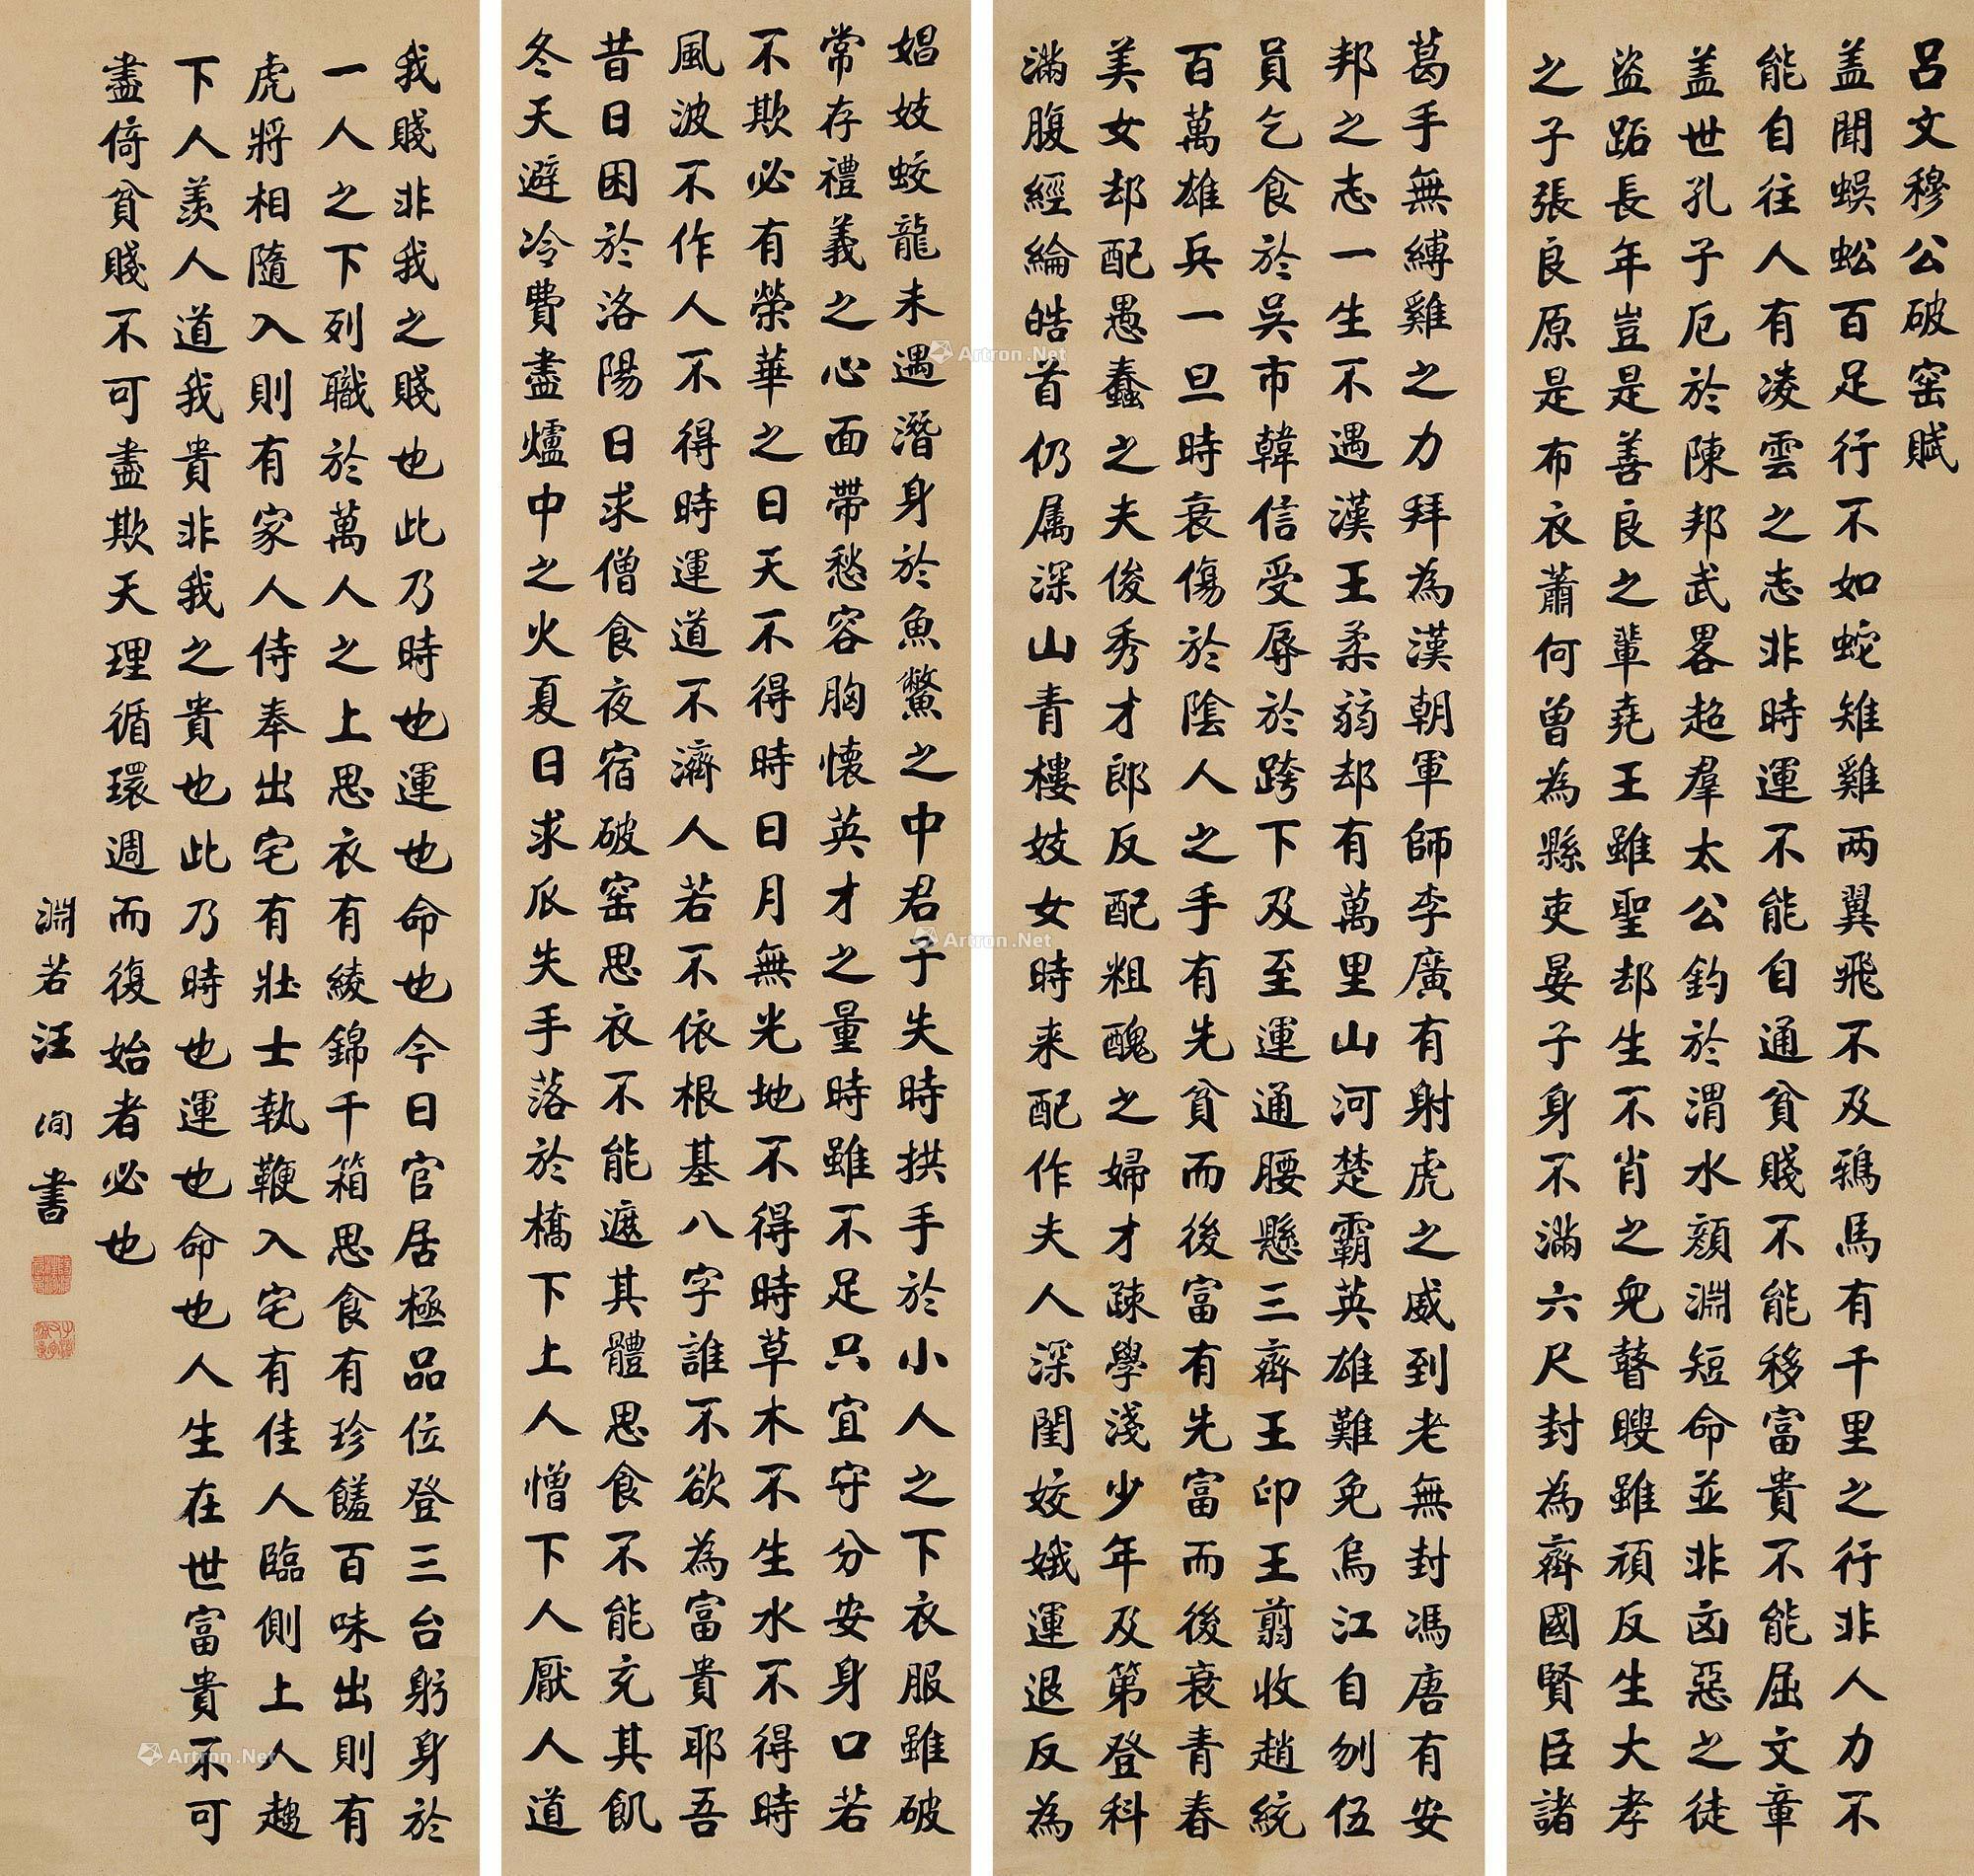 呂文穆公破窑賦
盖聞蜈蚣百足行不如蛇雉雞两翼飛不及鴉馬有千里之行非人力不
能自往人有凌雲之志非時運不能自通貧賤不能移富貴不能屈文章
盖世孔子厄於陳邦武畧超羣太公釣於渭水顔淵短命並非凶惡之徒
盜跖長年豈是善良之輩堯王雖聖却生不肖之兒瞽瞍雖頑反生大孝
之子張良原是布衣蕭何曾為縣吏晏子身不滿六尺封為齊國賢臣諸
葛手無縛雞之力拜為漢朝軍師李廣有射虎之威到老無封馮唐有安
邦之志一生不遇漢王柔弱却有萬里山河楚霸英雄難免烏江自刎伍
員乞食於吳市韓信受辱於跨下及至運通腰懸三齊王印王翦收趙統
百萬雄兵一旦時衰傷於陰人之手有先貧而後富有先富而後衰青春
美女却配愚蠢之夫俊秀才郎反配粗醜之婦才疎學淺少年及第登科
滿腹經綸皓首仍属深山青樓妓女時来配作夫人深閨姣娥運退反為
娼妓蛟龍未遇潛身於魚鱉之中君子失時拱手於小人之下衣服雖破
常存禮義之心面帶愁容胸懷英才之量時雖不足只宜守分安身口若
不欺必有榮華之日天不得時日月無光地不得時草木不生水不得時
風波不作人不得時運道不濟人若不依根基八字誰不欲為富貴耶吾
昔日困於洛陽日求僧食夜宿破窑思衣不能遮其體思食不能充其飢
冬天避冷費盡爐中之火夏日求瓜失手落於橋下上人憎下人厭人道
我賤非我之賤也此乃時也運也命也今日官居極品位登三台躬身於
一人之下列職於萬人之上思衣有綾錦千箱思食有珍饈百味出則有
虎將相隨入則有家人侍奉出宅有壯士執鞭入宅有佳人臨側上人趨
下人羨人道我貴非我之貴也此乃時也運也命也人生在世富貴不可
盡倚貧賤不可盡欺天理循環週而復始者必也
淵若汪恂書
Artron.Net
Artron.Net
Artron.Net